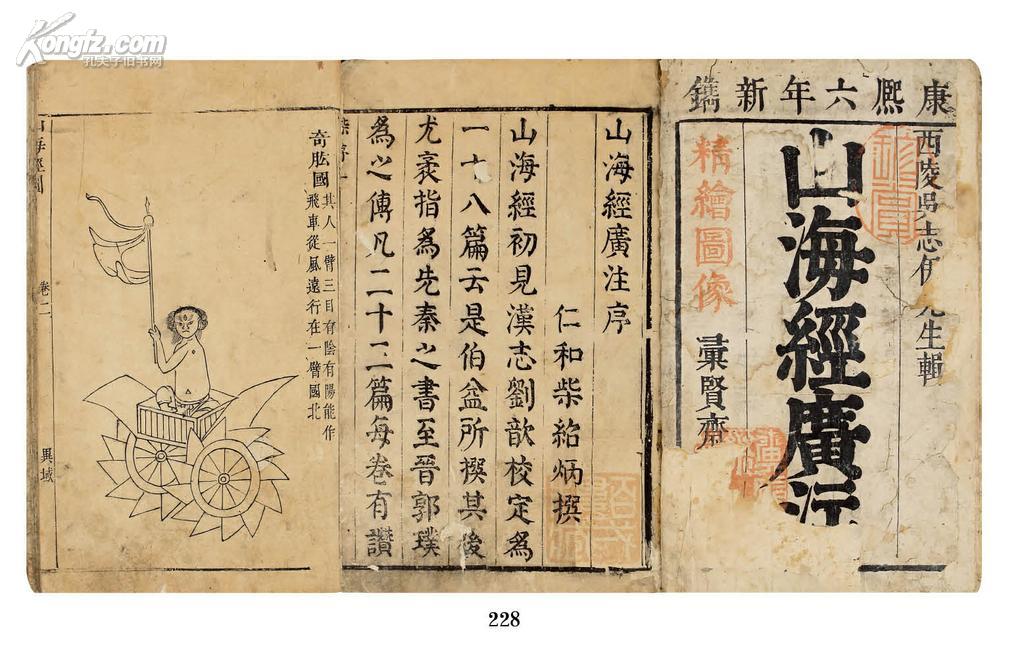 Kongfz.com
孔夫子旧书网
康熙六年新鐫
西陵吳志伊先生輯
山海經廣注
精繪圖像
彙賢齋
山海經廣注序
仁和柴紹炳撰
山海經初見漢志劉歆校定為
一十八篇云是伯益所撰其後
尤袤指為先秦之書至晉郭璞
為之傳凡二十三篇每卷有讚
柴序 一
奇肱國
其人一臂三目有陰有陽能作
飛車從風遠行在一臂國北
山海經圖
卷二
異域
228